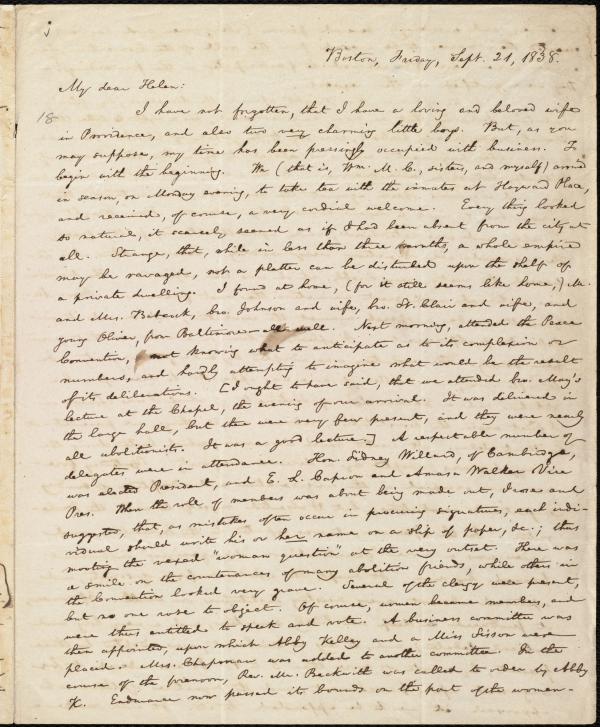 j
Boston, Friday, Sept. 21, 1838.
My dear Helen:
18
I have not forgotten, that I have a loving and beloved wife
in Providence, and also two very charming little boys. But, as you
may suppose, my time has been pressingly occupied with business. To
begin with the beginning. We (that is, Wm. M. C., sisters, and myself) arrived
in season, on Monday evening, to take tea with the inmates at Hayward Place,
and received, of course, a very cordial welcome. Every thing looked
so natural, it scarcely seemed as if I had been absent from the city at
all. Strange, that, while in less than three months, a whole empire
may be ravaged, not a platter can be disturbed upon the shelf of
a private dwelling. I found at home, (for it still seems like home,) Mr.
and Mrs. Babcock, bro. Johnson and wife, bro. St. Clair and wife, and
young Oliver, from Baltimore—all well. Next morning, attended the Peace
Convention, not knowing what to anticipate as to its complexion or
numbers, and hardly attempting to imagine what would be the result
of its deliberations. [I ought to have said, that we attended bro. May's
lecture at the Chapel, the evening of our arrival. It was delivered in
the large hall, but there were very few present, and they were nearly
all abolitionists. It was a good lecture.] A respectable number of
delegates were in attendance. Hon. Sidney Willard, of Cambridge,
was elected President, and E. L. Capron and Amasa Walker Vice
Pres. When the role of members was about being made out, I rose and
suggested, that, as mistakes often occur in procuring signatures, each indi-
vidual should write his or her name on a slip of paper, &c.; thus
mooting the vexed "woman question" at the very outset. There was
a smile on the countenances of many abolition friends, while others in
the Convention looked very grave. Several of the clergy were present,
but no one rose to object. Of course, women became members, and
were thus entitled to speak and vote. A business committee was
then appointed, upon which Abby Kelley and a Miss Sisson were
placed. Mrs. Chapman was added to another committee. In the
course of the forenoon, Rev. Mr. Beckwith was called to order by Abby
K. Endurance now passed its bounds on the part of the woman-